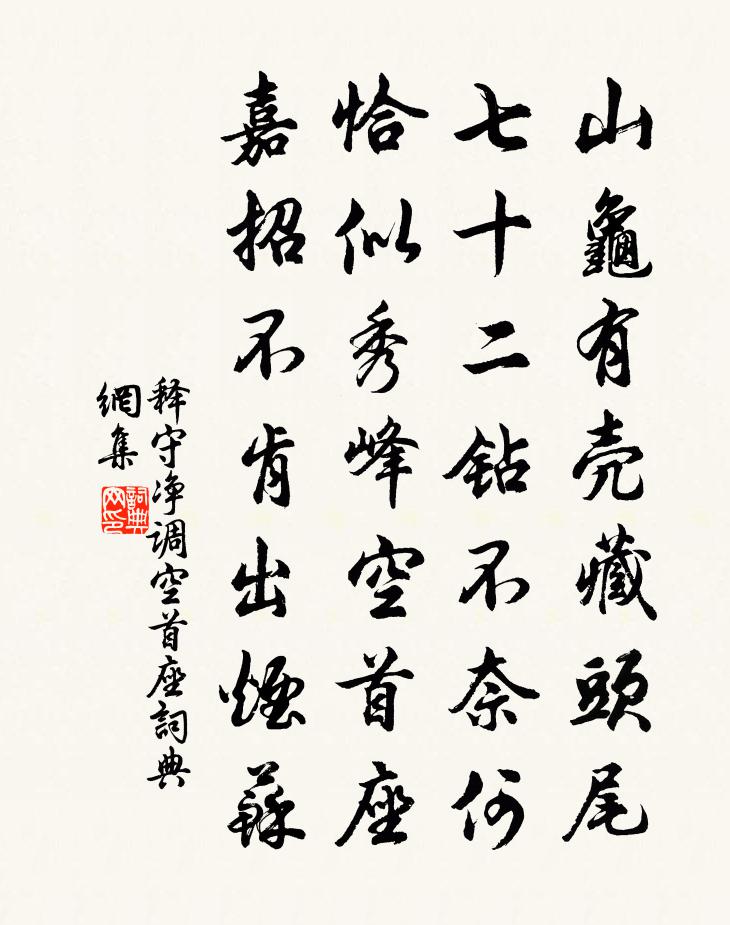 山龜有壳藏頭尾
七十二鈷不奈何
恰似秀峰空首座
嘉招不肯出煙蘇
释守净调空首座詞典
網集
詞典
网印